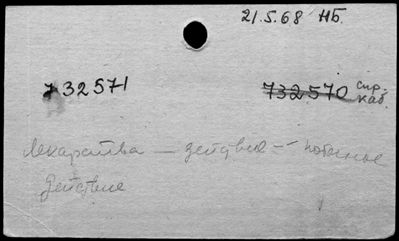 21.5.68 НБ.
732571 732570 спр. каб.
Лекарства — действие — побочное
действие